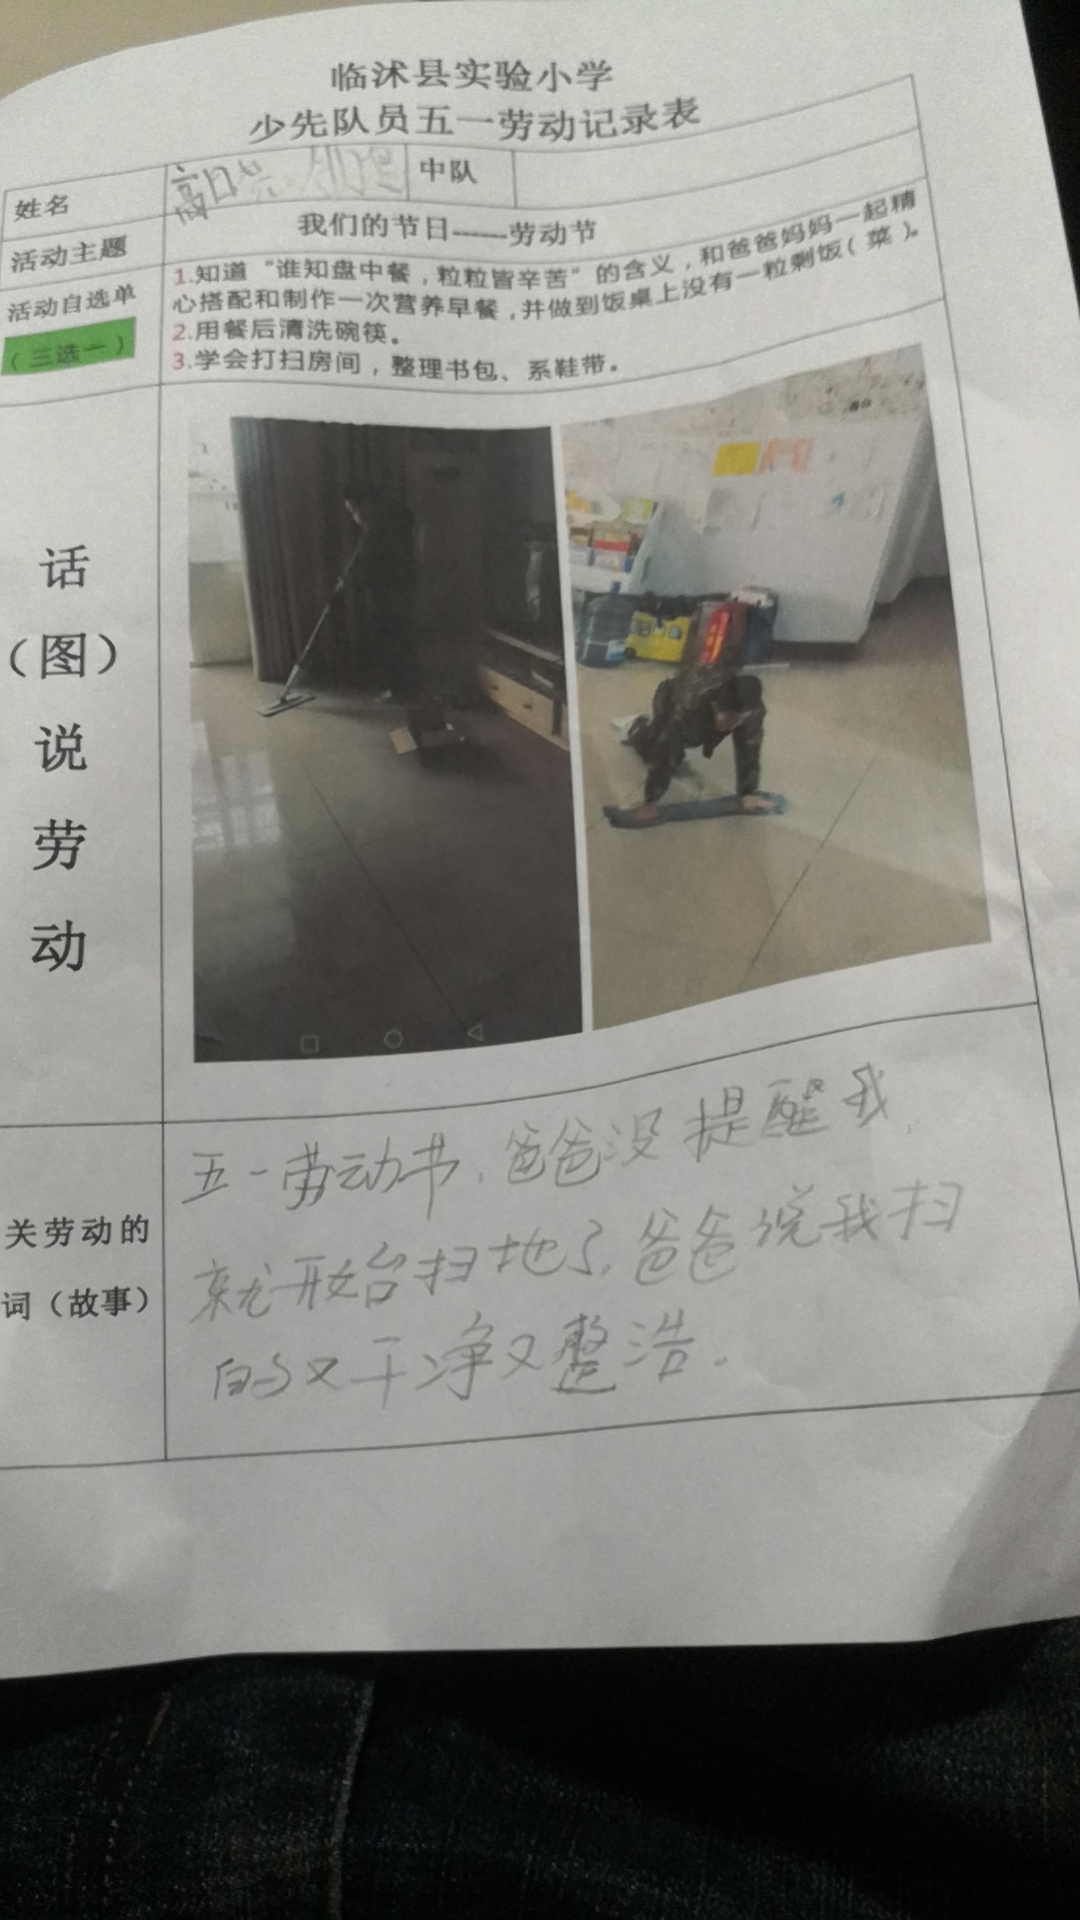 临沭县实验小学
少先队员五一劳动记录表
姓名 高日 中队
活动主题 我们的节日——劳动节
活动自选单
（三选一）
1.知道“谁知盘中餐，粒粒皆辛苦”的含义，和爸爸妈妈一起精
心搭配和制作一次营养早餐，并做到饭桌上没有一粒剩饭（菜）。
2.用餐后清洗碗筷。
3.学会打扫房间，整理书包、系鞋带。
话
（图）
说
劳
动
关劳动的
词（故事）
五一劳动节，爸爸没提醒我，
就开始扫地了，爸爸说我扫
的又干净又整洁.